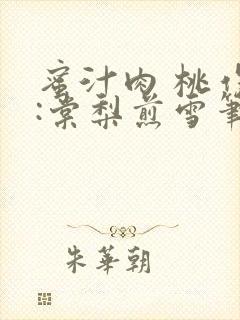 蜜汁肉桃
:棠梨煎雪
朱華朝